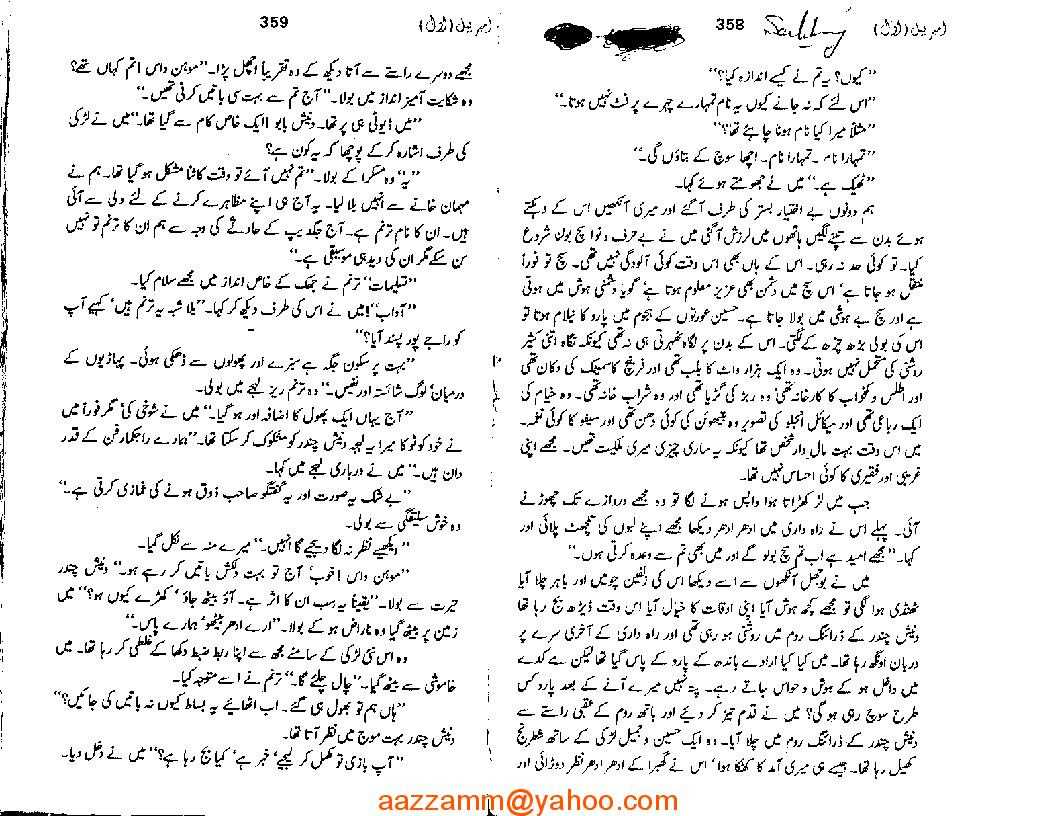 358
امربیل (اول)
"کیوں؟ یہ تم نے کیسے اندازہ کیا؟"
"اس لئے کہ نہ جانے کیوں یہ نام تمہارے چہرے پر فٹ نہیں ہوتا۔"
"مثلاً میرا کیا نام ہونا چاہئے تھا؟"
"تمہارا نام۔ تمہارا نام۔ اچھا سوچ کے بتاؤں گی۔"
"ٹھیک ہے۔" میں نے جھومتے ہوئے کہا۔
ہم دونوں بے اختیار بستر کی طرف آ گئے اور میری آنکھیں اس کے دہکتے
ہوئے بدن سے تپنے لگیں ہاتھوں میں لرزش آ گئی میں نے بے حرف و نوا سچ بولنا شروع
کیا۔ تو کوئی حد نہ رہی۔ اس کے ہاں بھی اس وقت کوئی آلودگی نہیں تھی۔ سچ تو فوراً
منتقل ہو جاتا ہے، اس سچ میں دشمن بھی عزیز معلوم ہوتا ہے گویا دشمنی ہوش میں ہوتی
ہے اور سچ بے ہوشی میں بولا جاتا ہے۔ حسین عورتوں کے ہجوم میں پارو کا نیلام ہوتا تو
اس کی بولی بڑھ چڑھ کے لگتی۔ اس کے بدن پر نگاہ ٹھہرتی ہی نہ تھی کیونکہ نگاہ اتنی کثیر
روشنی کی متحمل نہیں ہوتی۔ وہ ایک ہزار واٹ کا بلب تھی اور فرنچ کاسمیٹک کی دکان تھی
اور اطلس و کمخواب کا کارخانہ تھی، وہ ربڑ کی گڑیا تھی اور وہ شراب خانہ تھی۔ وہ خیام کی
ایک رباعی تھی اور میکائل انجلو کی تصویر وہ بیتھوون کی کوئی دھن تھی اور سیفو کا کوئی نغمہ۔
میں اس وقت بہت مال دار شخص تھا کیونکہ یہ ساری چیزیں میری ملکیت تھیں۔ مجھے اپنی
غریبی اور فقیری کا کوئی احساس نہیں تھا۔
جب میں لڑکھڑاتا ہوا واپس ہونے لگا تو وہ مجھے دروازے تک چھوڑنے
آئی۔ پہلے اس نے راہ داری میں ادھر ادھر دیکھا مجھے اپنے لبوں کی تلچھٹ پلائی اور
کہا۔ "مجھے امید ہے اب تم سچ بولو گے اور میں بھی تم سے وعدہ کرتی ہوں۔"
میں نے بوجھل آنکھوں سے اسے دیکھا اس کی زلفیں چومیں اور باہر چلا آیا
ٹھنڈی ہوا لگی تو مجھے کچھ ہوش آیا اپنی اوقات کا خیال آیا اس وقت ڈیڑھ بج رہا تھا
ونیش چندر کے ڈرائنگ روم میں روشنی ہو رہی تھی اور راہ داری کے آخری سرے پر
دربان اونگھ رہا تھا۔ میں کیا کیا ارادے باندھ کے پارو کے پاس گیا تھا لیکن مے کدے
میں داخل ہو کے ہوش و حواس جاتے رہے۔ پتہ نہیں میرے آنے کے بعد پارو کس
طرح سوچ رہی ہو گی؟ میں نے قدم تیز کر دیئے اور باتھ روم کے عقبی راستے سے
ونیش چندر کے ڈرائنگ روم میں چلا آیا۔ وہ ایک حسین و جمیل لڑکی کے ساتھ شطرنج
کھیل رہا تھا۔ جیسے ہی میری آمد کا کھٹکا ہوا، اس نے گھبرا کے ادھر ادھر نظر دوڑائی اور
359
امربیل (اول)
مجھے دوسرے راستے سے آتا دیکھ کے وہ تقریباً اچھل پڑا۔ "موہن داس! تم کہاں تھے؟
وہ شکایت آمیز انداز میں بولا۔ "آج تم سے بہت سی باتیں کرنی تھیں۔"
"میں ڈیوٹی ہی پر تھا۔ ونیش بابو! ایک خاص کام سے گیا تھا۔" میں نے لڑکی
کی طرف اشارہ کر کے پوچھا کہ یہ کون ہے؟
"یہ" وہ مسکرا کے بولا۔ "تم نہیں آئے تو وقت کاٹنا مشکل ہو گیا تھا۔ ہم نے
مہمان خانے سے انہیں بلا لیا۔ یہ آج ہی اپنے مظاہرے کرنے کے لئے دلی سے آئی
ہیں۔ ان کا نام ترنم ہے۔ آج جگدیپ کے حادثے کی وجہ سے ہم ان کا ترنم تو نہیں
سن سکے مگر ان کی دید ہی موسیقی ہے۔"
"تسلیمات" ترنم نے جھک کے خاص انداز میں مجھے سلام کیا۔
"آداب"! میں نے اس کی طرف دیکھ کر کہا۔ "بلا شبہ یہ ترنم ہیں، کہیے آپ
کو راجے پور پسند آیا؟"
"بہت پر سکون جگہ ہے سبزے اور پھولوں سے ڈھکی ہوئی۔ پہاڑیوں کے
درمیان، لوگ شائستہ اور نفیس۔" وہ ترنم ریز لہجے میں بولی۔
"آج یہاں ایک پھول کا اضافہ اور ہو گیا۔" میں نے شوخی کی، مگر فوراً میں
نے خود کو ٹوکا میرا یہ لہجہ ونیش چندر کو مشکوک کر سکتا تھا۔ "ہمارے راجکمار فن کے قدر
دان ہیں۔" میں نے درباری لہجے میں کہا۔
"بے شک یہ صورت اور یہ گفتگو صاحب ذوق ہونے کی غمازی کرتی ہے۔"
وہ خوش سلیقگی سے بولی۔
"دیکھیے نظر نہ لگا دیجیے گا انہیں۔" میرے منہ سے نکل گیا۔
"موہن داس! خوب! آج تو بہت دلکش باتیں کر رہے ہو۔" ونیش چندر
حیرت سے بولا۔ "یقیناً یہ سب ان کا اثر ہے۔ آؤ بیٹھ جاؤ، کھڑے کیوں ہو؟" میں
زمین پر بیٹھ گیا وہ ناراض ہو کے بولا۔ "ارے ادھر بیٹھو، ہمارے پاس۔"
وہ اس نئی لڑکی کے سامنے مجھ سے اپنا ربط ضبط دکھا کے غلطی کر رہا تھا۔ میں
خاموشی سے بیٹھ گیا۔ "چال چلئے گا۔" ترنم نے اسے متوجہ کیا۔
"ہاں ہم تو بھول ہی گئے۔ اب اٹھائیے یہ بساط کیوں نہ باتیں کی جائیں؟"
ونیش چندر بہت موج میں نظر آتا تھا۔
"آپ بازی تو مکمل کر لیجیے، خبر ہے، کیا بج رہا ہے؟" میں نے دخل دیا۔
aazzamm@yahoo.com